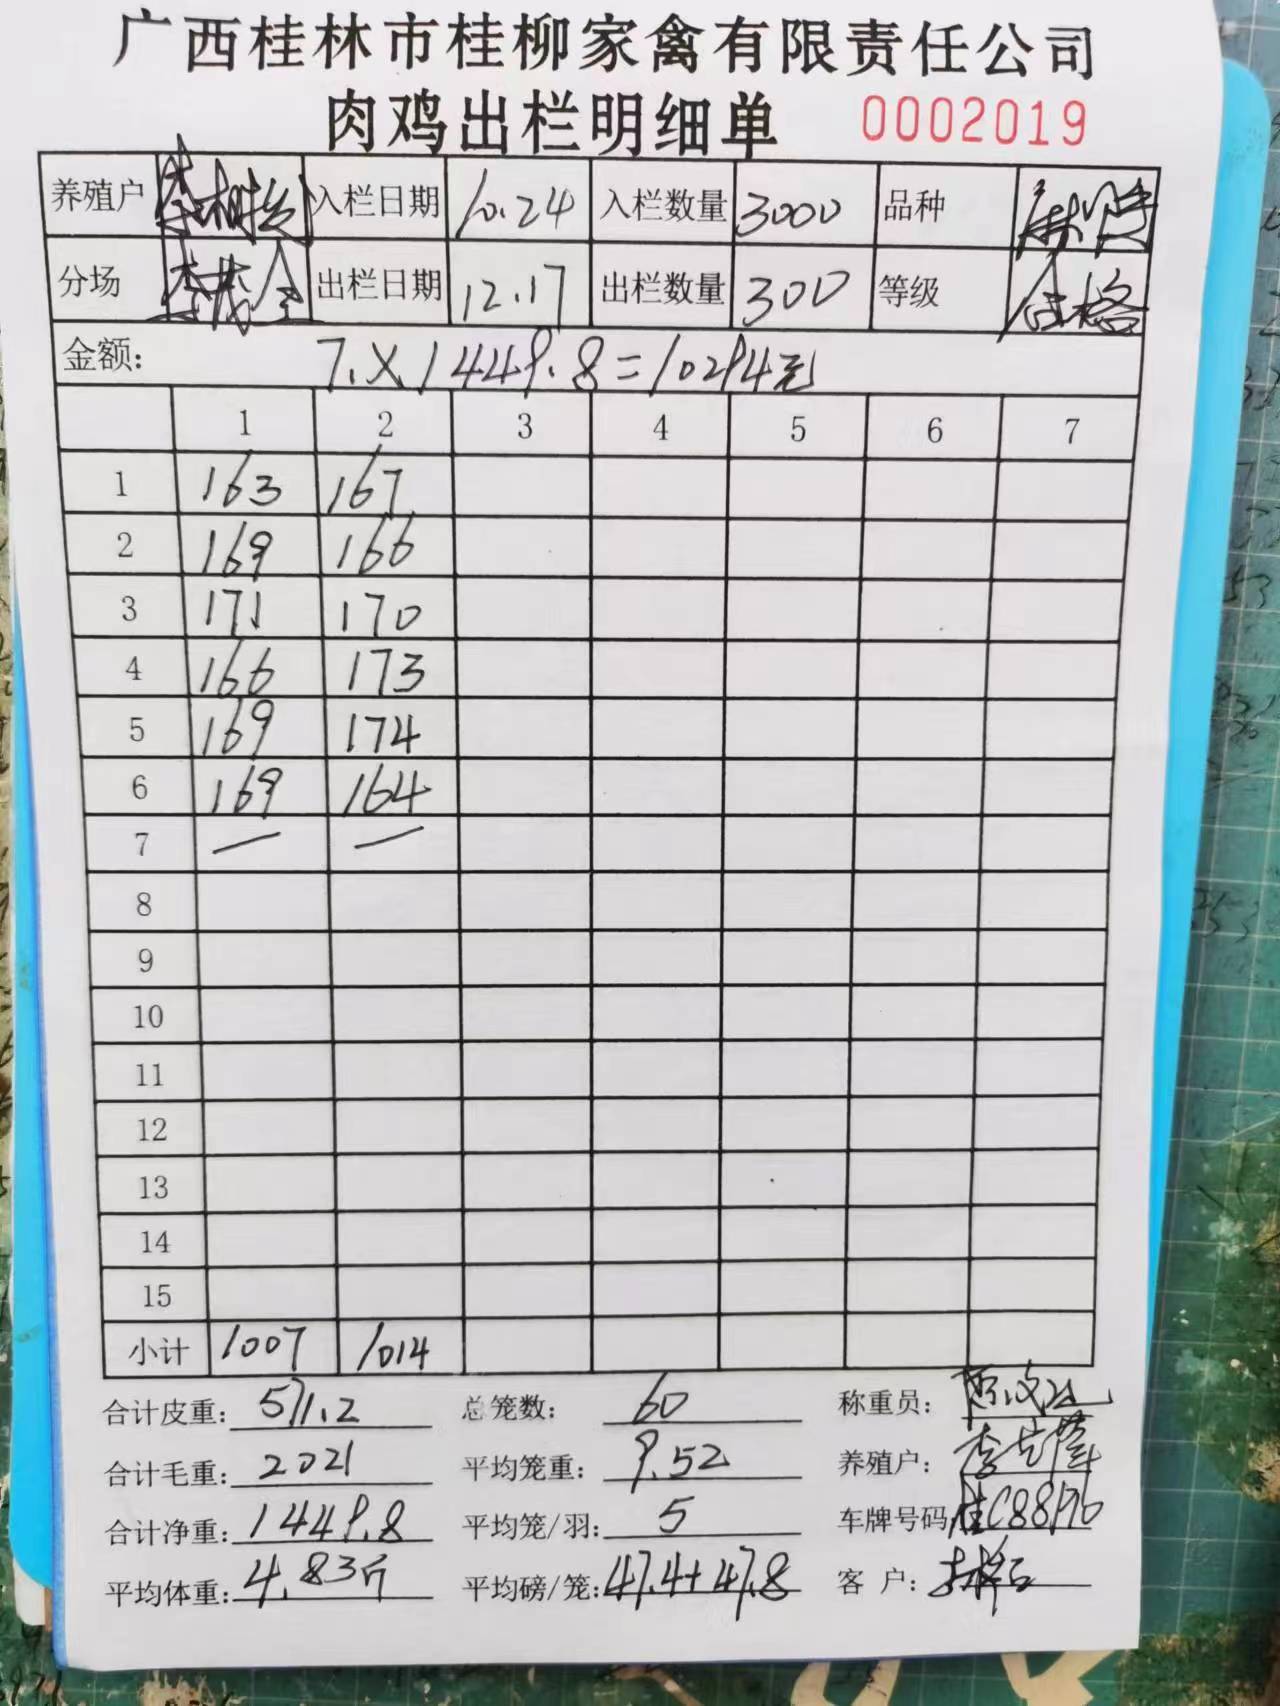 广西桂林市桂柳家禽有限责任公司
肉鸡出栏明细单 0002019
养殖户 入栏日期 10.24 入栏数量 3000 品种
分场 李茂全 出栏日期 12.17 出栏数量 300 等级 合格
金额: 7.X1449.8=10294元
1 2 3 4 5 6 7
1 163 167
2 169 166
3 171 170
4 166 173
5 169 174
6 169 164
7 — —
8
9
10
11
12
13
14
15
小计 1007 1014
合计皮重: 571.2 总笼数: 60 称重员:
合计毛重: 2021 平均笼重: 9.52 养殖户:
合计净重: 1449.8 平均笼/羽: 5 车牌号码 桂C88196
平均体重: 4.83斤 平均磅/笼: 47.4+47.8 客户: